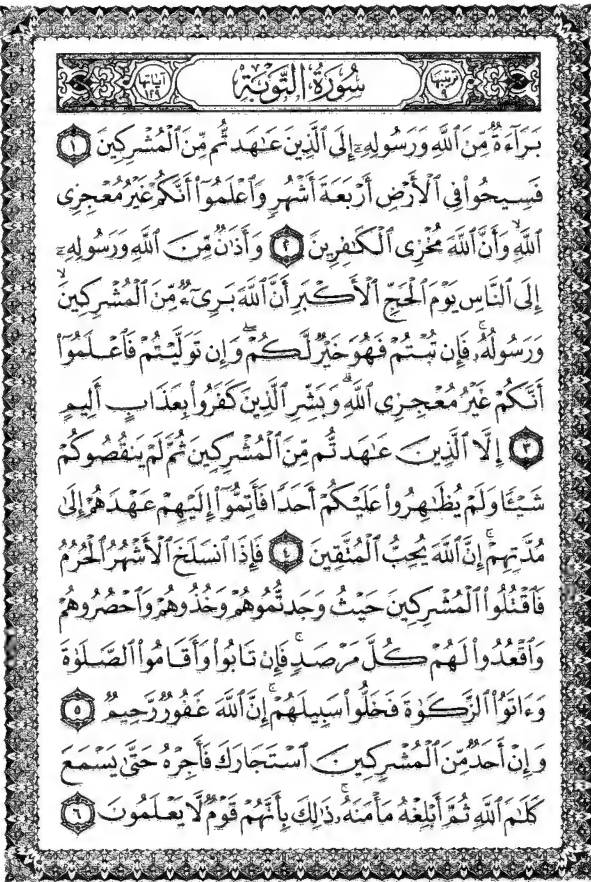 ترتيبها ٩ سُورَةُ التَّوۡبَةِ آياتها ١٢٩
بَرَآءَةٞ مِّنَ ٱللَّهِ وَرَسُولِهِۦٓ إِلَى ٱلَّذِينَ عَٰهَدتُّم مِّنَ ٱلۡمُشۡرِكِينَ ١
فَسِيحُواْ فِي ٱلۡأَرۡضِ أَرۡبَعَةَ أَشۡهُرٖ وَٱعۡلَمُوٓاْ أَنَّكُمۡ غَيۡرُ مُعۡجِزِي
ٱللَّهِۙ وَأَنَّ ٱللَّهَ مُخۡزِي ٱلۡكَٰفِرِينَ ٢ وَأَذَٰنٞ مِّنَ ٱللَّهِ وَرَسُولِهِۦٓ
إِلَى ٱلنَّاسِ يَوۡمَ ٱلۡحَجِّ ٱلۡأَكۡبَرِ أَنَّ ٱللَّهَ بَرِيٓءٞ مِّنَ ٱلۡمُشۡرِكِينَۙ
وَرَسُولُهُۥۚ فَإِن تُبۡتُمۡ فَهُوَ خَيۡرٞ لَّكُمۡۖ وَإِن تَوَلَّيۡتُمۡ فَٱعۡلَمُوٓاْ
أَنَّكُمۡ غَيۡرُ مُعۡجِزِي ٱللَّهِۗ وَبَشِّرِ ٱلَّذِينَ كَفَرُواْ بِعَذَابٍ أَلِيمٍ
٣ إِلَّا ٱلَّذِينَ عَٰهَدتُّم مِّنَ ٱلۡمُشۡرِكِينَ ثُمَّ لَمۡ يَنقُصُوكُمۡ
شَيۡـٔٗا وَلَمۡ يُظَٰهِرُواْ عَلَيۡكُمۡ أَحَدٗا فَأَتِمُّوٓاْ إِلَيۡهِمۡ عَهۡدَهُمۡ إِلَىٰ
مُدَّتِهِمۡۚ إِنَّ ٱللَّهَ يُحِبُّ ٱلۡمُتَّقِينَ ٤ فَإِذَا ٱنسَلَخَ ٱلۡأَشۡهُرُ ٱلۡحُرُمُ
فَٱقۡتُلُواْ ٱلۡمُشۡرِكِينَ حَيۡثُ وَجَدتُّمُوهُمۡ وَخُذُوهُمۡ وَٱحۡصُرُوهُمۡ
وَٱقۡعُدُواْ لَهُمۡ كُلَّ مَرۡصَدٖۚ فَإِن تَابُواْ وَأَقَامُواْ ٱلصَّلَوٰةَ
وَءَاتَوُاْ ٱلزَّكَوٰةَ فَخَلُّواْ سَبِيلَهُمۡۚ إِنَّ ٱللَّهَ غَفُورٞ رَّحِيمٞ ٥
وَإِنۡ أَحَدٞ مِّنَ ٱلۡمُشۡرِكِينَ ٱسۡتَجَارَكَ فَأَجِرۡهُ حَتَّىٰ يَسۡمَعَ
كَلَٰمَ ٱللَّهِ ثُمَّ أَبۡلِغۡهُ مَأۡمَنَهُۥۚ ذَٰلِكَ بِأَنَّهُمۡ قَوۡمٞ لَّا يَعۡلَمُونَ ٦